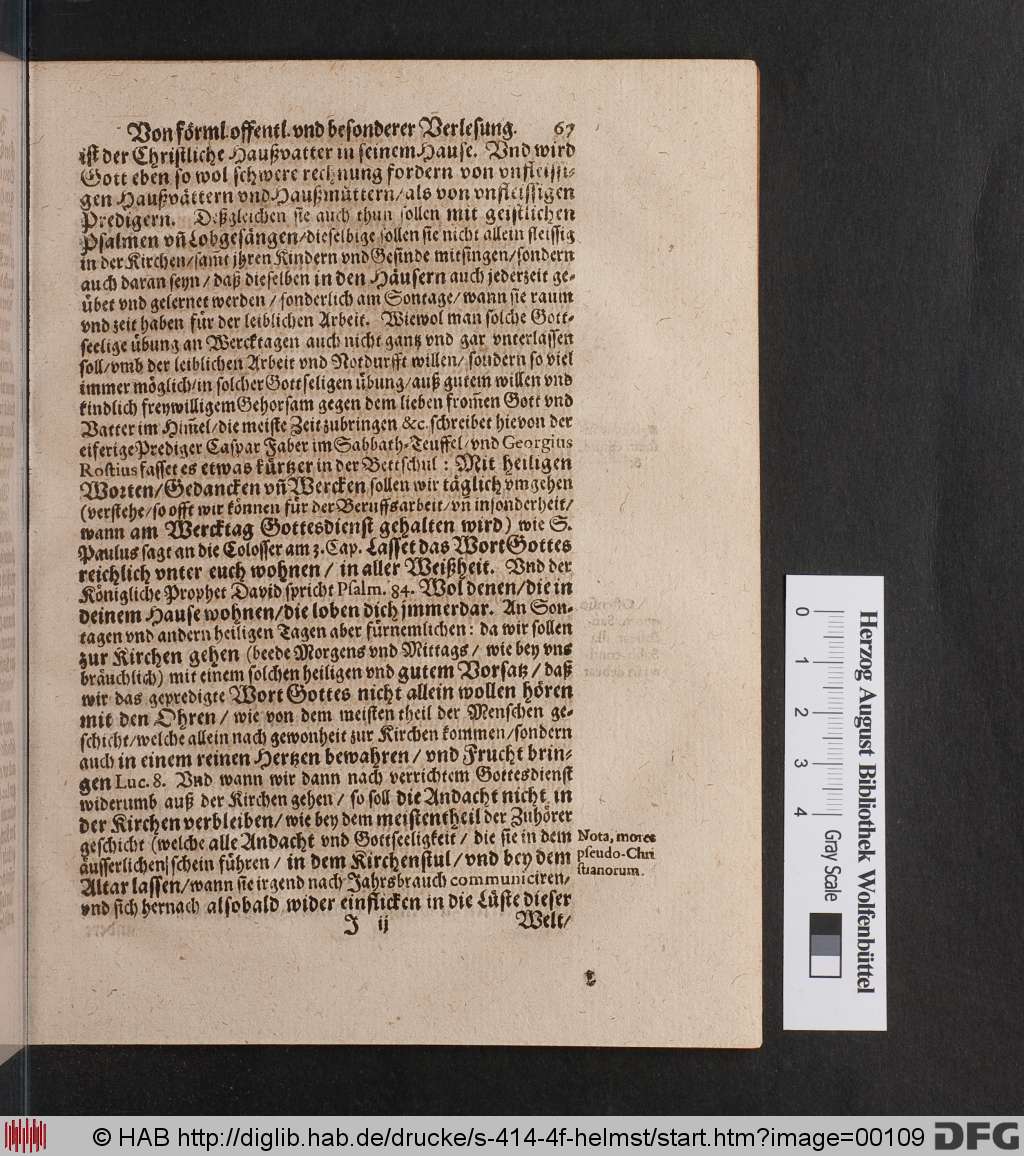 Von förml. offentl. vnd besonderer Verlesung. 67
ist der Christliche Haußvatter in seinem Hause. Vnd wird
Gott eben so wol schwere rechnung fordern von vnfleissi-
gen Haußvättern vnd Haußmüttern/als von vnfleissigen
Predigern. Deßgleichen sie auch thun sollen mit geistlichen
Psalmen vñ Lobgesängen/dieselbige sollen sie nicht allein fleissig
in der Kirchen/samt jhren Kindern vnd Gesinde mitsingen/sondern
auch daran seyn/daß dieselben in den Häusern auch jederzeit ge-
übet vnd gelernet werden/sonderlich am Sontage/wann sie raum
vnd zeit haben für der leiblichen Arbeit. Wiewol man solche Gott-
seelige übung an Wercktagen auch nicht gantz vnd gar vnterlassen
soll/vmb der leiblichen Arbeit vnd Notdurfft willen/sondern so viel
immer möglich/in solcher Gottseligen übung/auß gutem willen vnd
kindlich freywilligem Gehorsam gegen dem lieben from̃en Gott vnd
Vatter im Him̃el/die meiste Zeit zubringen &c. schreibet hievon der
eiferige Prediger Caspar Faber im Sabbath-Teuffel/vnd Georgius
Rostius fasset es etwas kürtzer in der Bettschul: Mit heiligen
Worten/Gedancken vñ Wercken sollen wir täglich vmgehen
(verstehe/so offt wir können für der Beruffsarbeit/vn insonderheit/
wann am Wercktag Gottesdienst gehalten wird) wie S.
Paulus sagt an die Colosser am 3. Cap. Lasset das Wort Gottes
reichlich vnter euch wohnen/in aller Weißheit. Vnd der
Königliche Prophet David spricht Psalm. 84. Wol denen/die in
deinem Hause wohnen/die loben dich jmmerdar. An Son-
tagen vnd andern heiligen Tagen aber fürnemlichen: da wir sollen
zur Kirchen gehen (beede Morgens vnd Mittags/wie bey vns
bräuchlich) mit einem solchen heiligen vnd gutem Vorsatz/daß
wir das gepredigte Wort Gottes nicht allein wollen hören
mit den Ohren/wie von dem meisten theil der Menschen ge-
schicht/welche allein nach gewonheit zur Kirchen kommen/sondern
auch in einem reinen Hertzen bewahren/vnd Frucht brin-
gen Luc. 8. Vnd wann wir dann nach verrichtem Gottesdienst
widerumb auß der Kirchen gehen/so soll die Andacht nicht in
der Kirchen verbleiben/wie bey dem meistentheil der Zuhörer
geschicht (welche alle Andacht vnd Gottseeligkeit/die sie in dem
äusserlichen schein führen/in dem Kirchenstul/vnd bey dem
Altar lassen/wann sie irgend nach Jahrsbrauch communiciren/
vnd sich hernach alsobald wider einflicken in die Lüste dieser
J ij Welt/
Nota, mores
pseudo-Chri
stianorum.
0 1 2 3 4
Herzog August Bibliothek Wolfenbüttel
Gray Scale
© HAB http://diglib.hab.de/drucke/s-414-4f-helmst/start.htm?image=00109
DFG